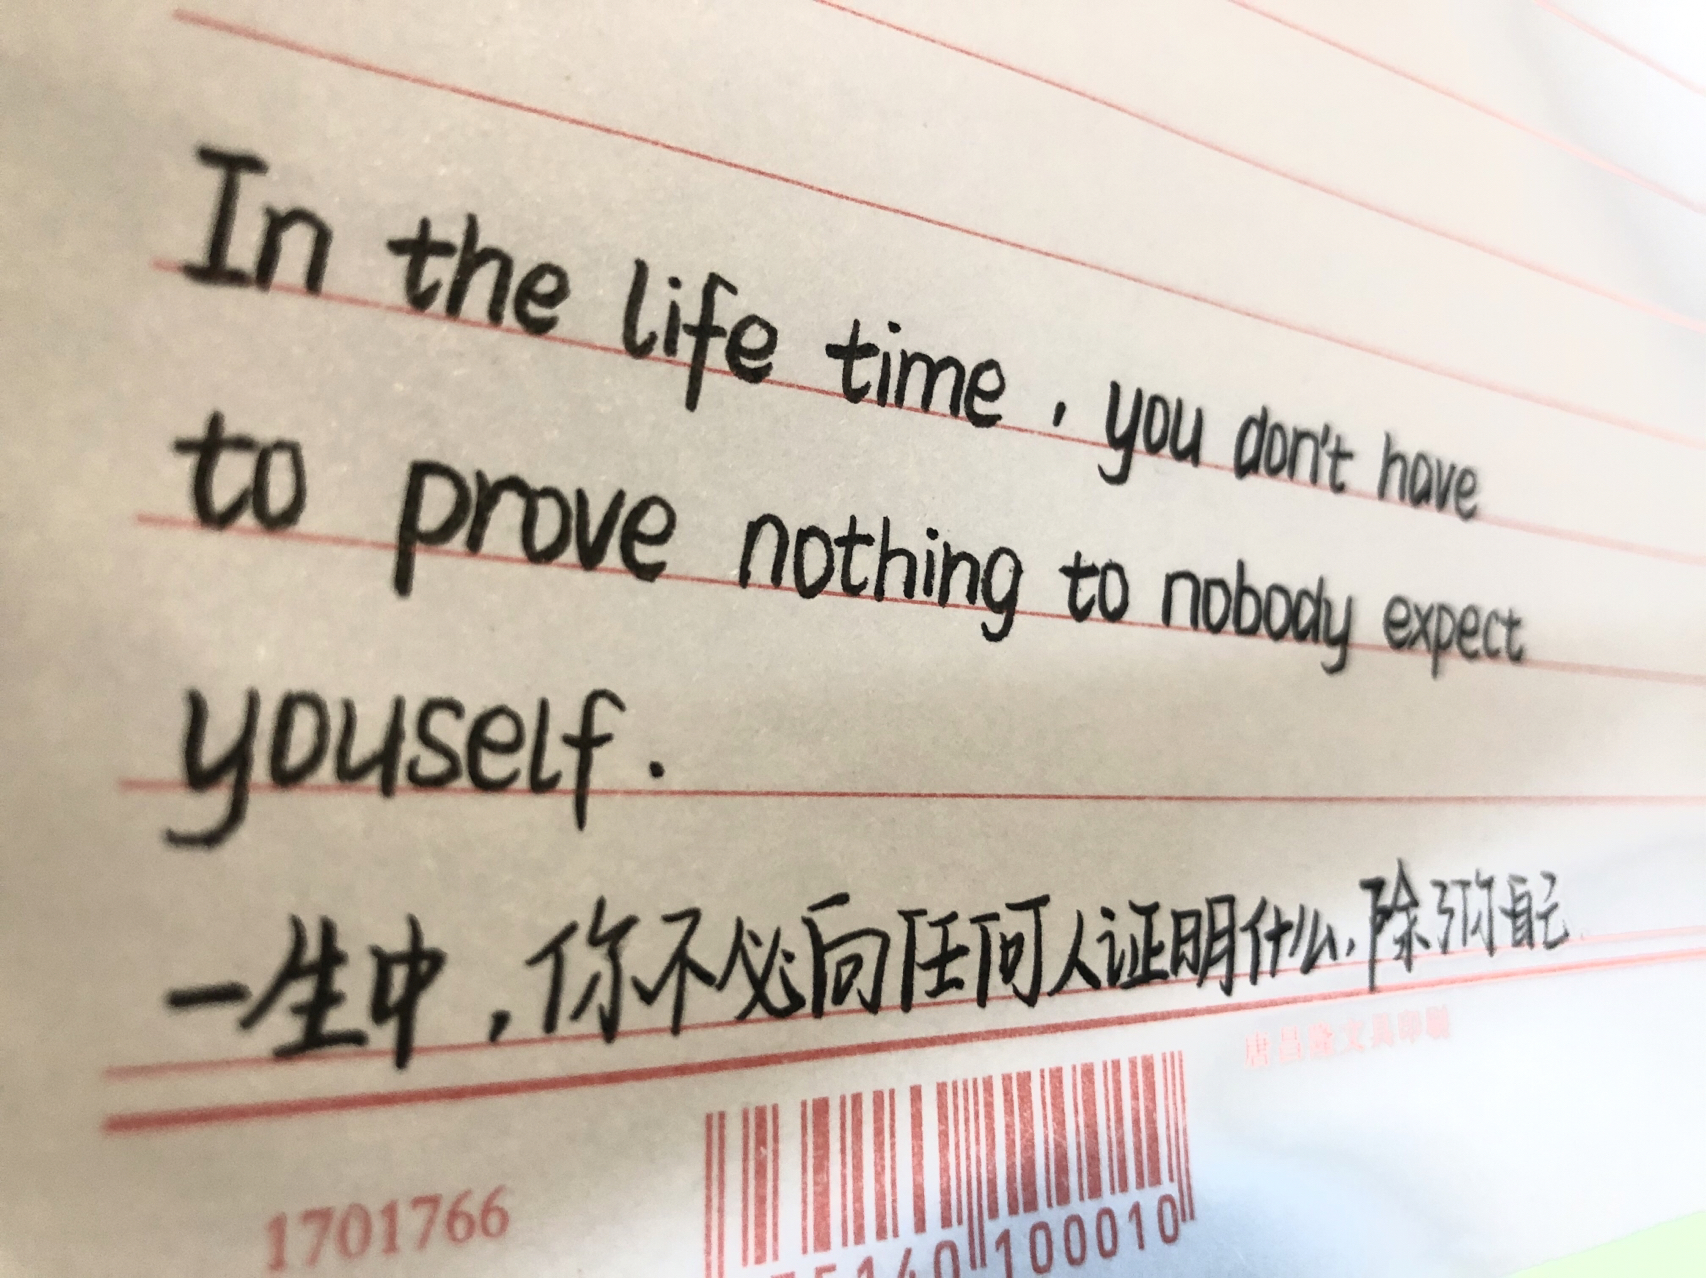 In the life time, you don't have
to prove nothing to nobody expect
youself.
一生中,你不必向任何人证明什么,除了你自己.
唐昌隆文具印刷
1701766
100010